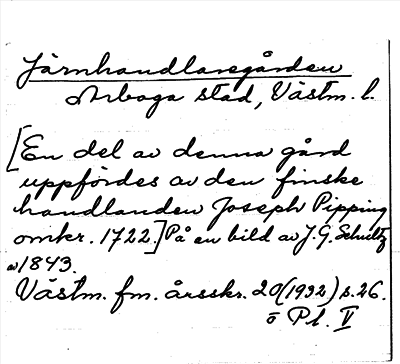 Järnhandlaregården
Arboga stad, Västm. l.
[En del av denna gård
uppfördes av den finske
handlanden Joseph Pipping
omkr. 1722.] På en bild av J. G. Schultz
1843.
Västm. fm. årsskr. 20 (1932) s. 26.
o Pl. V